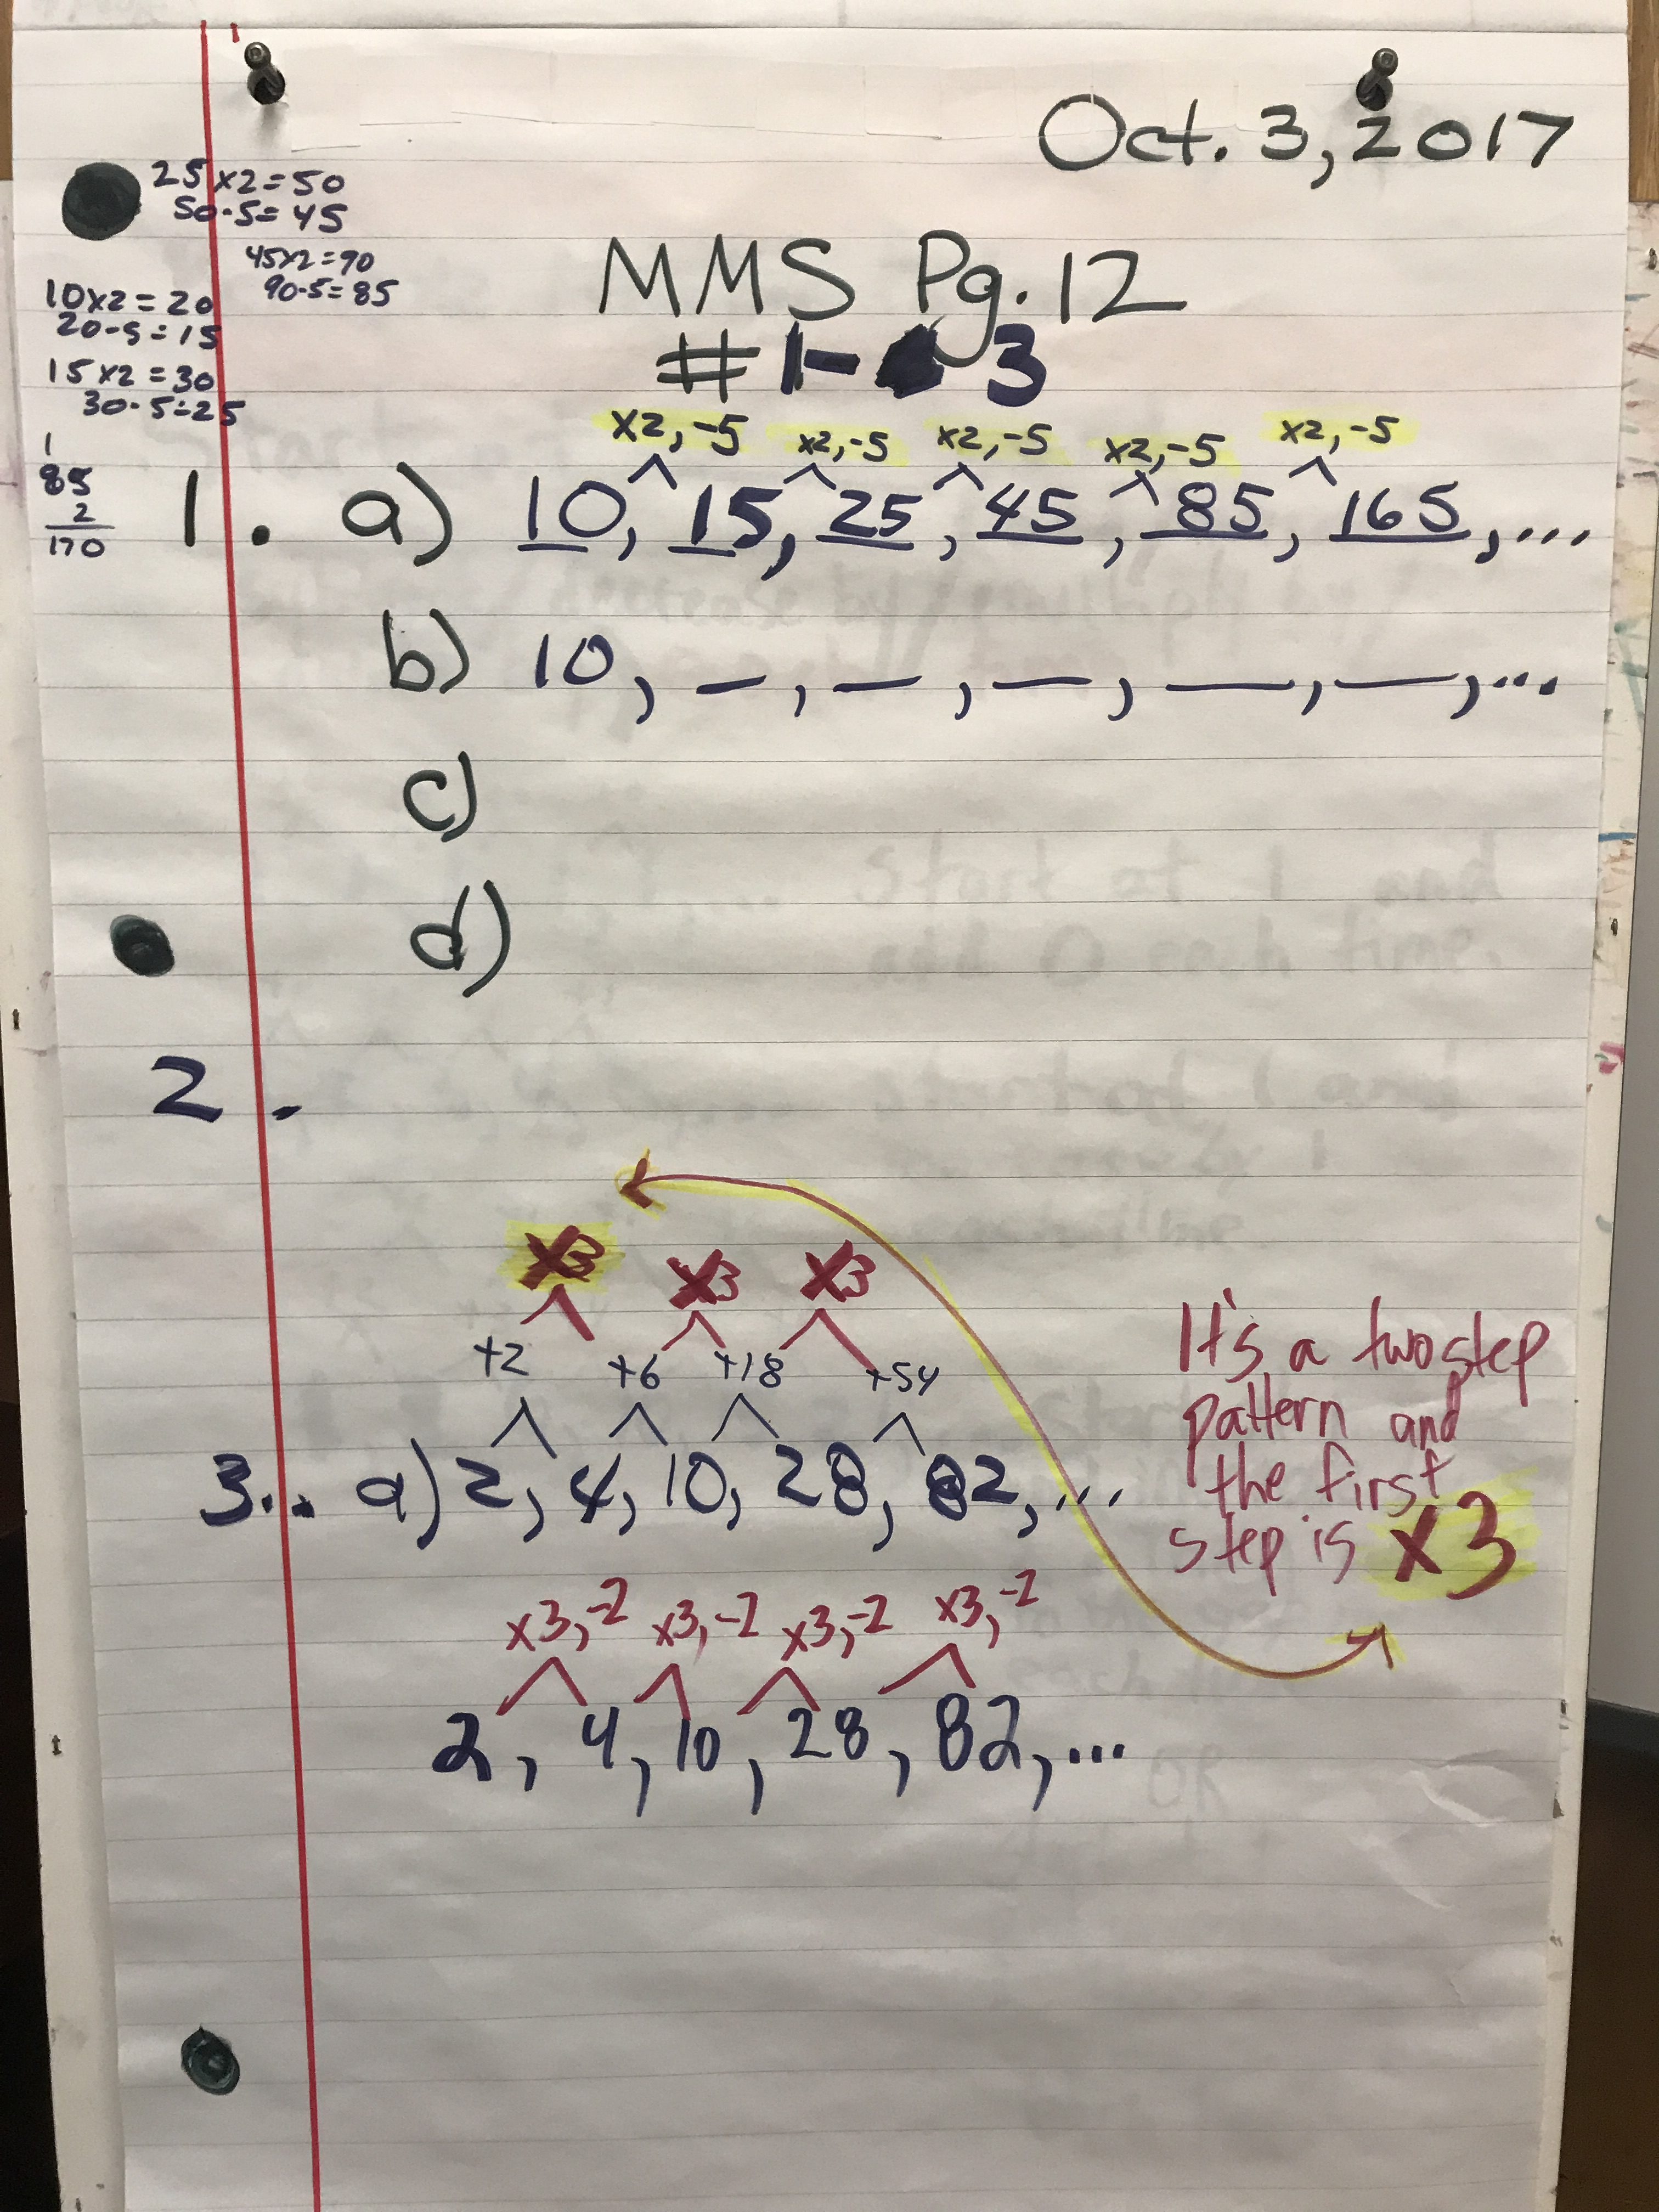 Oct. 3, 2017
25 x2=50
50-5= 45
45x2=90
90-5=85
10x2=20
20-5=15
15x2=30
30-5=25
1
85
2
170
MMS Pg. 12
#1- 3
x2,-5 x2,-5 x2,-5 x2,-5 x2,-5
1. a) 10, 15, 25, 45, 85, 165, ...
b) 10, _, _, _, _, _, ...
c)
d)
2.
x3 x3 x3
+2 +6 +18 +54
3.. a) 2, 4, 10, 28, 82, ...
It's a two step
pattern and
the first
step is x3
x3,-2 x3,-2 x3,-2 x3,-2
2, 4, 10, 28, 82, ...